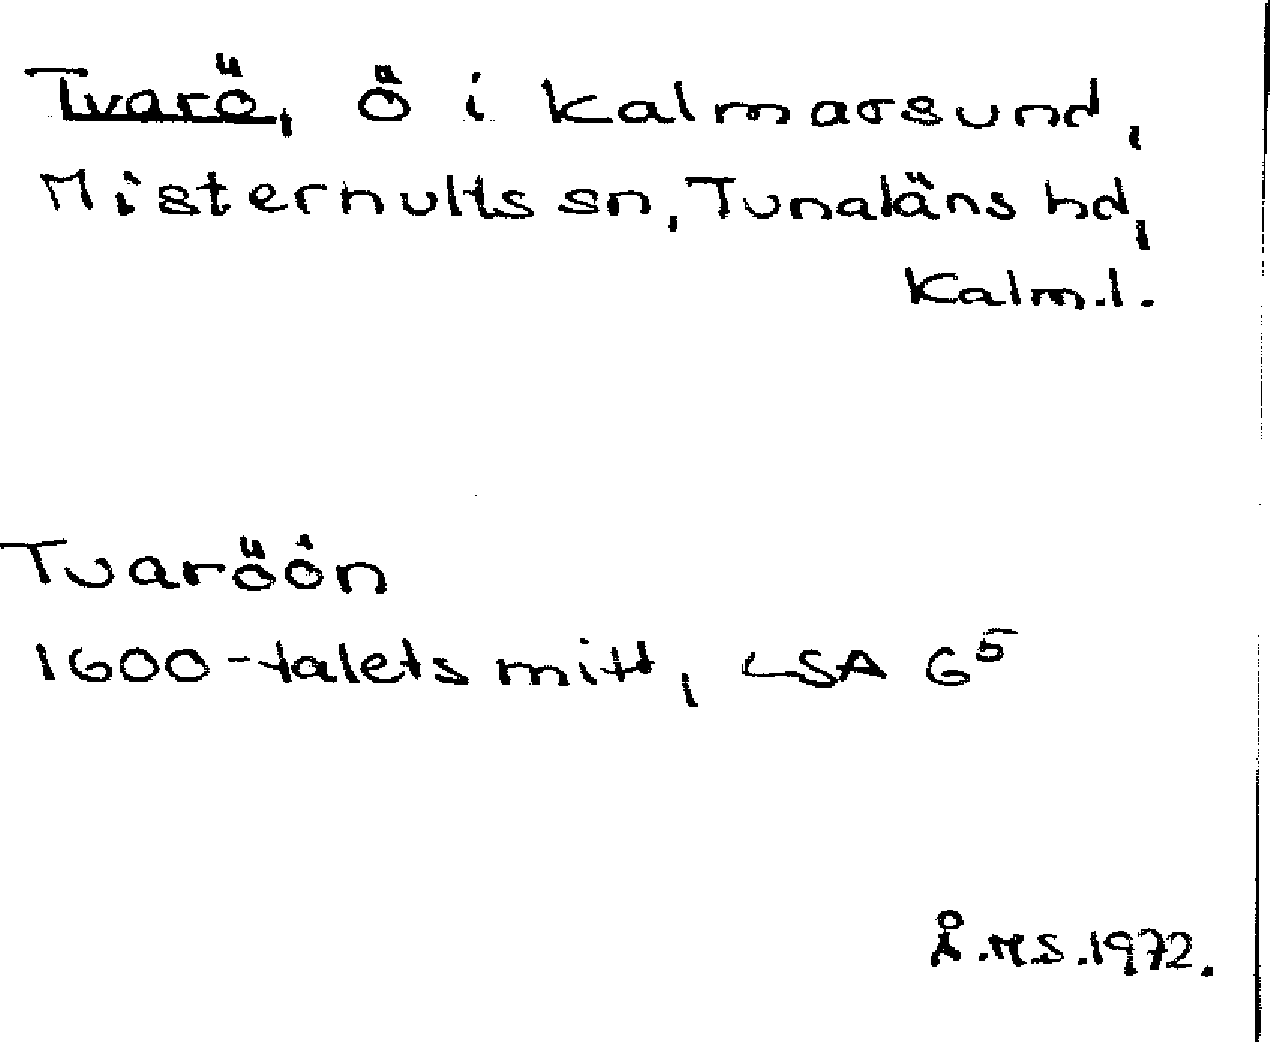 Tvarö, Ö i Kalmarsund,
Misterhults sn, Tunaläns hd,
Kalm.l.
Tvaröön
1600-talets mitt, LSA G⁵
Å.M.S.1972.